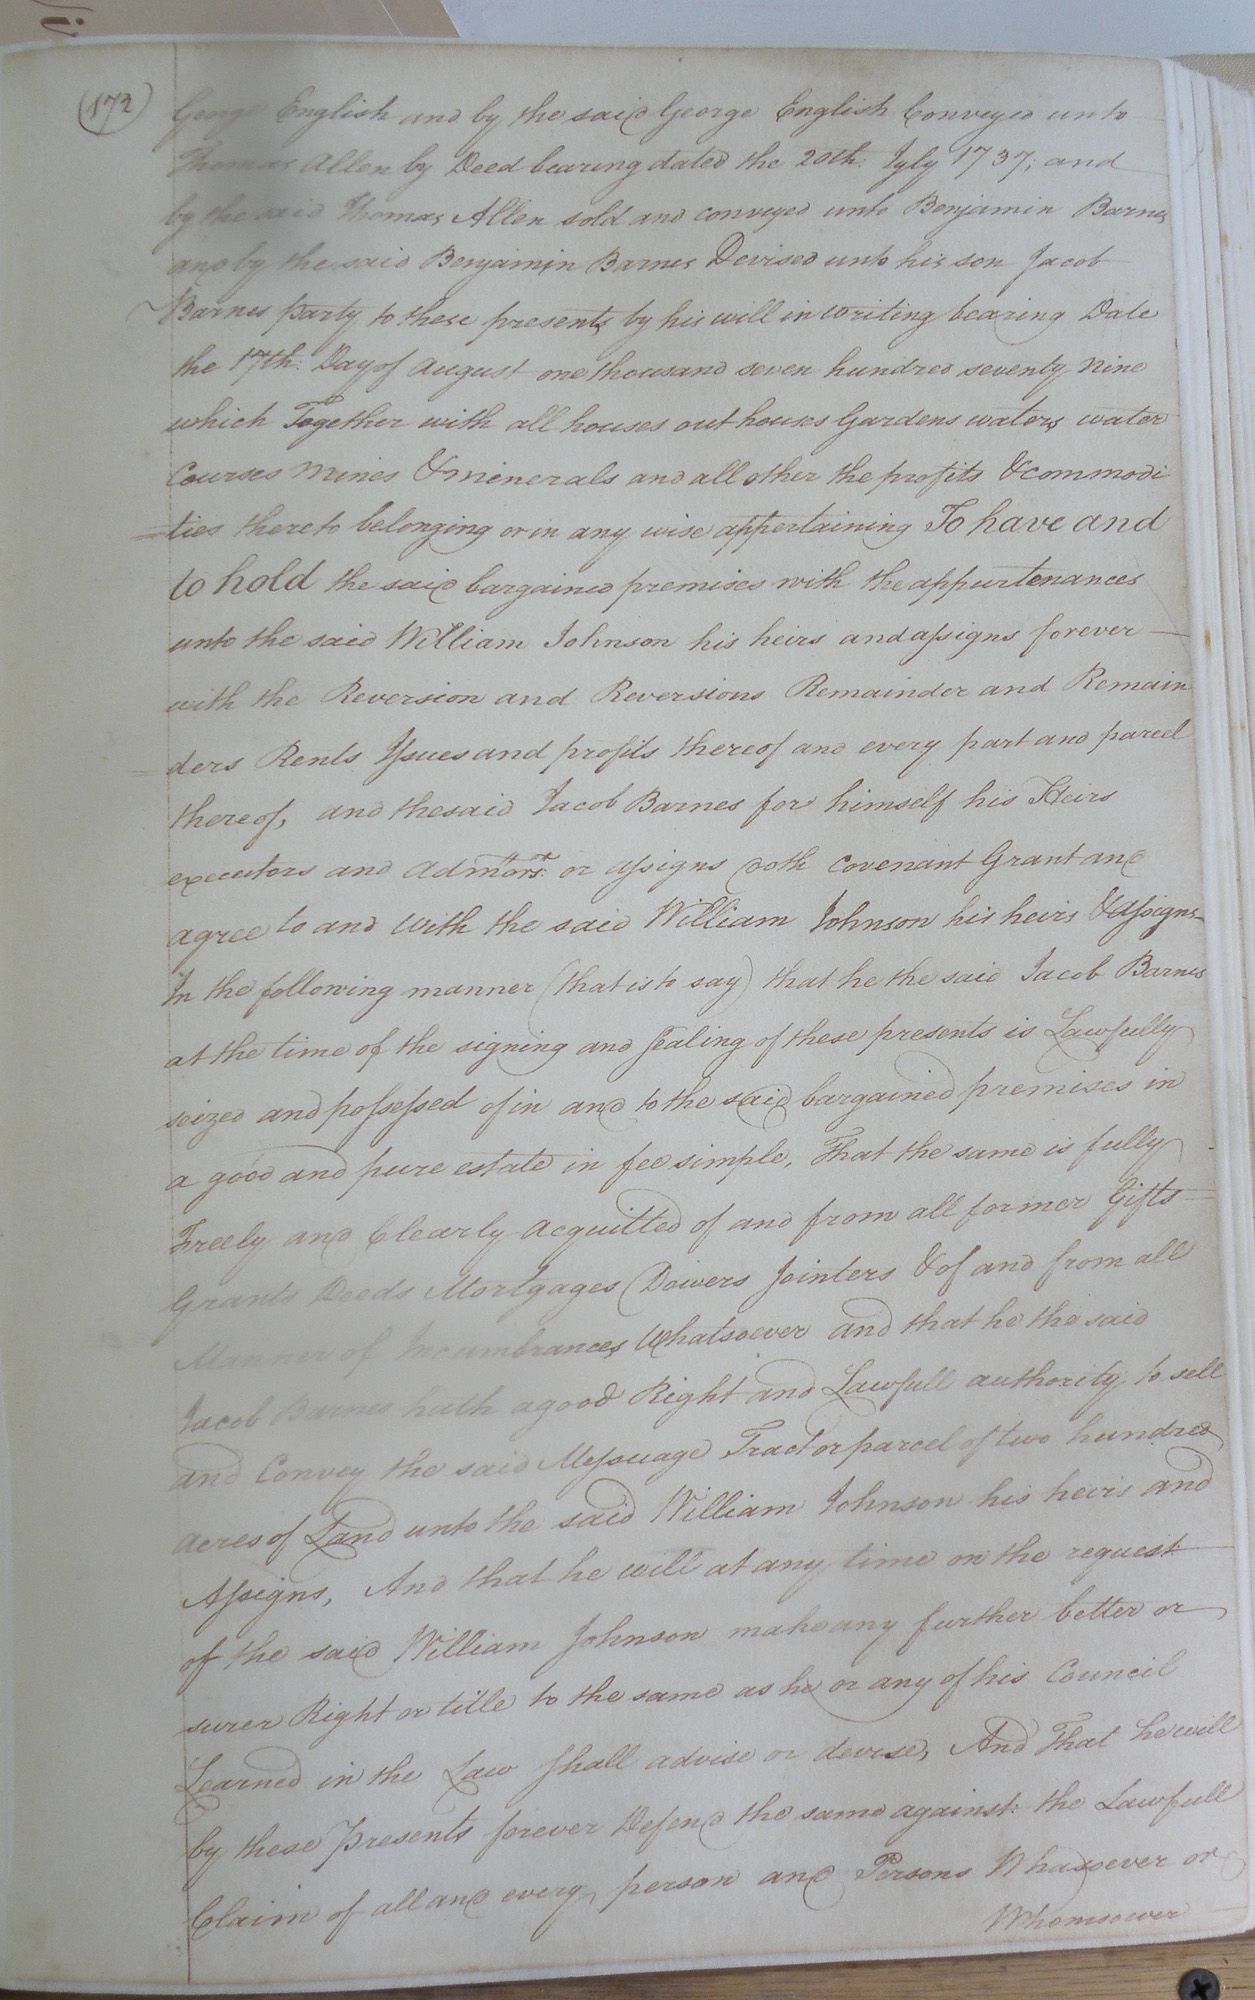 (172)
George English and by the said George English Conveyed unto
Thomas Allen by Deed bearing dated the 20th. July 1737, and
by the said Thomas Allen sold and conveyed unto Benjamin Barnes
and by the said Benjamin Barnes Devised unto his son Jacob
Barnes party to these presents by his will in writing bearing Date
the 17th. Day of August one thousand seven hundred seventy nine
which Together with all houses out houses Gardens waters water
Courses mines & minerals and all other the profits & commodi
=ties thereto belonging or in any wise appertaining To have and
to hold the said bargained premises with the appurtenances
unto the said William Johnson his heirs and assigns forever
with the Reversion and Reversions Remainder and Remain
=ders Rents Issues and profits thereof and every part and parcel
thereof, and the said Jacob Barnes for himself his Heirs
executors and Admtors. or assigns doth Covenant Grant and
agree to and With the said William Johnson his heirs & Assigns
In the following manner (that is to say) that he the said Jacob Barnes
at the time of the signing and sealing of these presents is Lawfully
seized and possessed of in and to the said bargained premises in
a good and pure estate in fee simple, That the same is fully
Freely and Clearly Acquitted of and from all former Gifts
Grants Deeds Mortgages Dowers Jointers & of and from all
Manner of Incumbrances Whatsoever and that he the said
Jacob Barnes hath a good Right and Lawfull authority to sell
and Convey the said Messuage Tract or parcel of two hundred
acres of Land unto the said William Johnson his heirs and
Assigns, And that he will at any time on the request
of the said William Johnson make any further better or
surer Right or title to the same as he or any of his Council
Learned in the Law shall advise or devise, And That he will
by these Presents forever Defend the same against the Lawfull
Claim of all and every person and Persons Whasoever or
Whomsoever